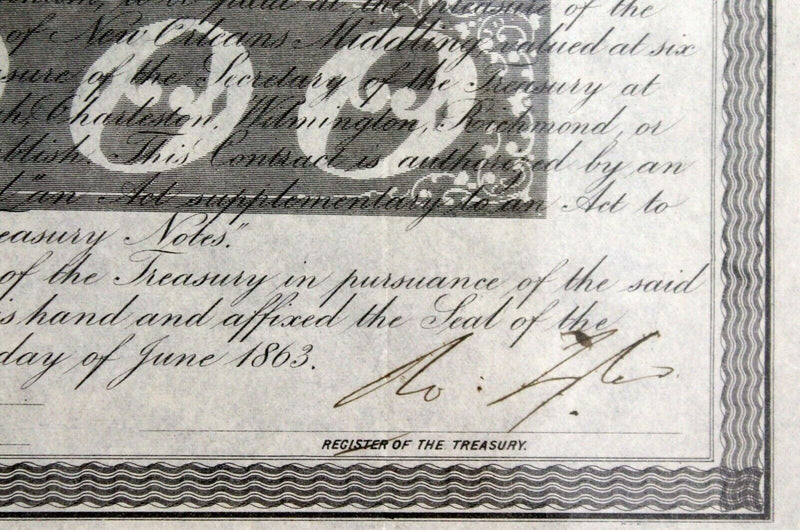 to be paid at the pleasure of the
of New Orleans Middling valued at six
sure of the Secretary of the Treasury at
h, Charleston, Wilmington, Richmond, or
blish. This Contract is authorized by an
"an Act supplementary to an Act to
easury Notes."
of the Treasury in pursuance of the said
is hand and affixed the Seal of the
day of June 1863.
REGISTER OF THE TREASURY.